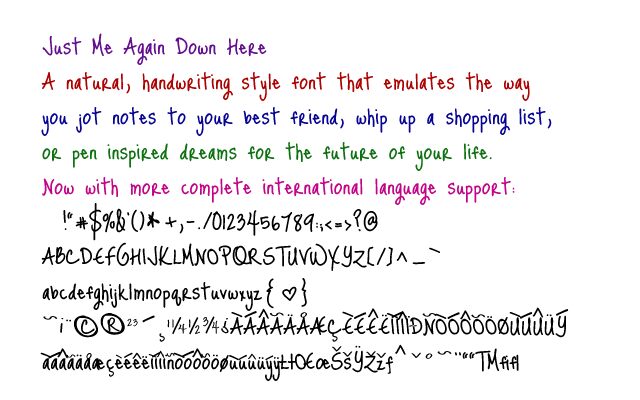 Just Me Again Down Here
A natural, handwriting style font that emulates the way
you jot notes to your best friend, whip up a shopping list,
or pen inspired dreams for the future of your life.
Now with more complete international language support:
!"#$%&'()*+,-./0123456789:;<=>?@
ABCDEFGHIJKLMNOPQRSTUVWXYZ[/]^_`
abcdefghijklmnopqrstuvwxyz{♡}
~¡¨©®²³¯¸¹¼½¾¿ÀÁÂÃÄÅÆÇÈÉÊËÌÍÎÏÐÑÒÓÔÕÖØÙÚÛÜÝ
àáâãäåæçèéêëìíîïñòóôõöøùúûüýÿŁłŒœŠšŸŽžƒˆˇ˘˚˜¨“”™fifl